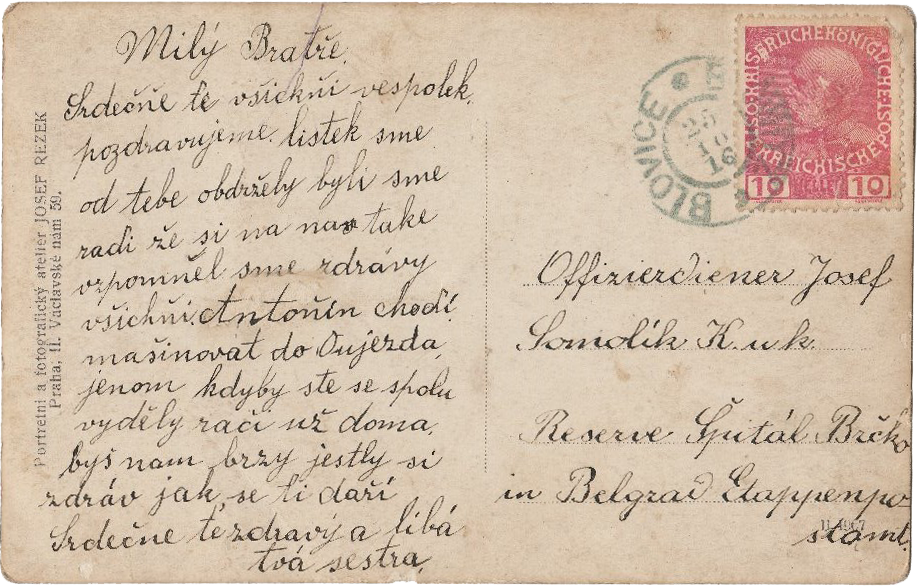 Milý Bratře.
Srdečně tě všickňi vespolek
pozdravujeme. listek sme
od tebe obdržely byli sme
radi že si na nas take
vzpomněl sme zdrávy
všickňi. Antoňín chodí
mašinovat do Oujezda,
jenom kdyby ste se spolu
vyděly rači už doma,
byš nam brzy jestly si
zdráv jak se ti daří
Srdečne tě zdravý a libá
tvá sestra.
Portretní a fotografický atelier JOSEF REZEK
Praha, II. Václavské nám 59.
BLOVICE
KAISERLICHEKÖNIGLICHE
ÖSTERREICHISCHEPOST
10 HELLER 10
Offizierdiener Josef
Somolík K. u k.
Reserve Špitál Brčko
in Belgrad Etappenpo-
stamt.